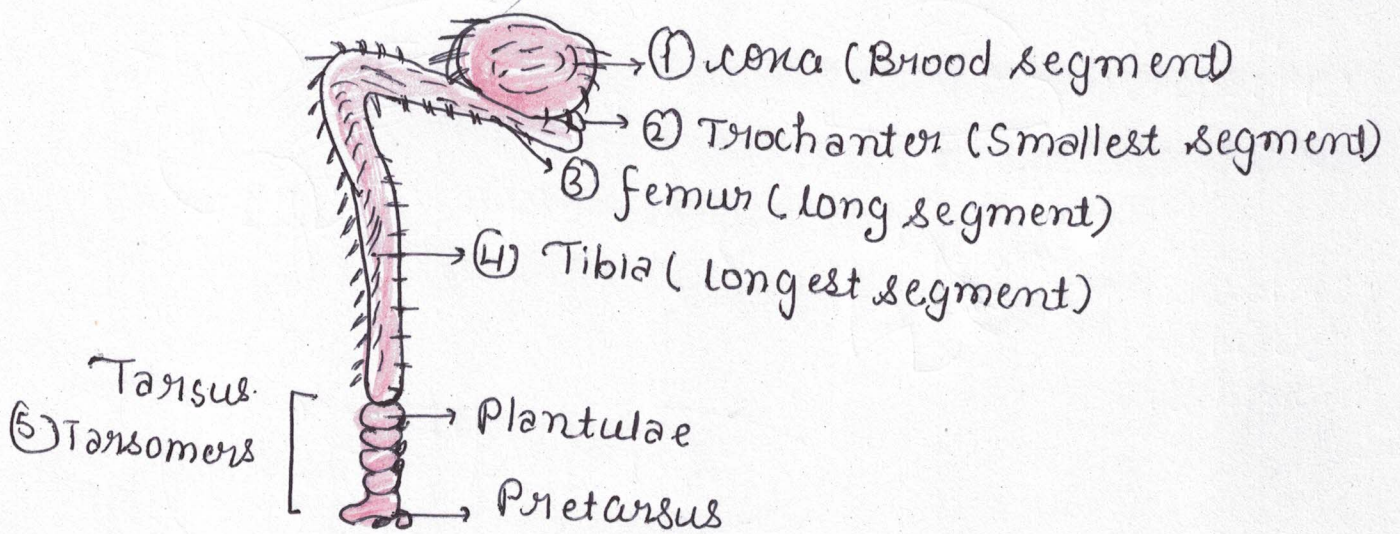 ① coxa (Brood segment)
② Trochanter (Smallest segment)
③ femur (long segment)
④ Tibia (longest segment)
Tarsus
⑤ Tarsomers
Plantulae
Pretarsus